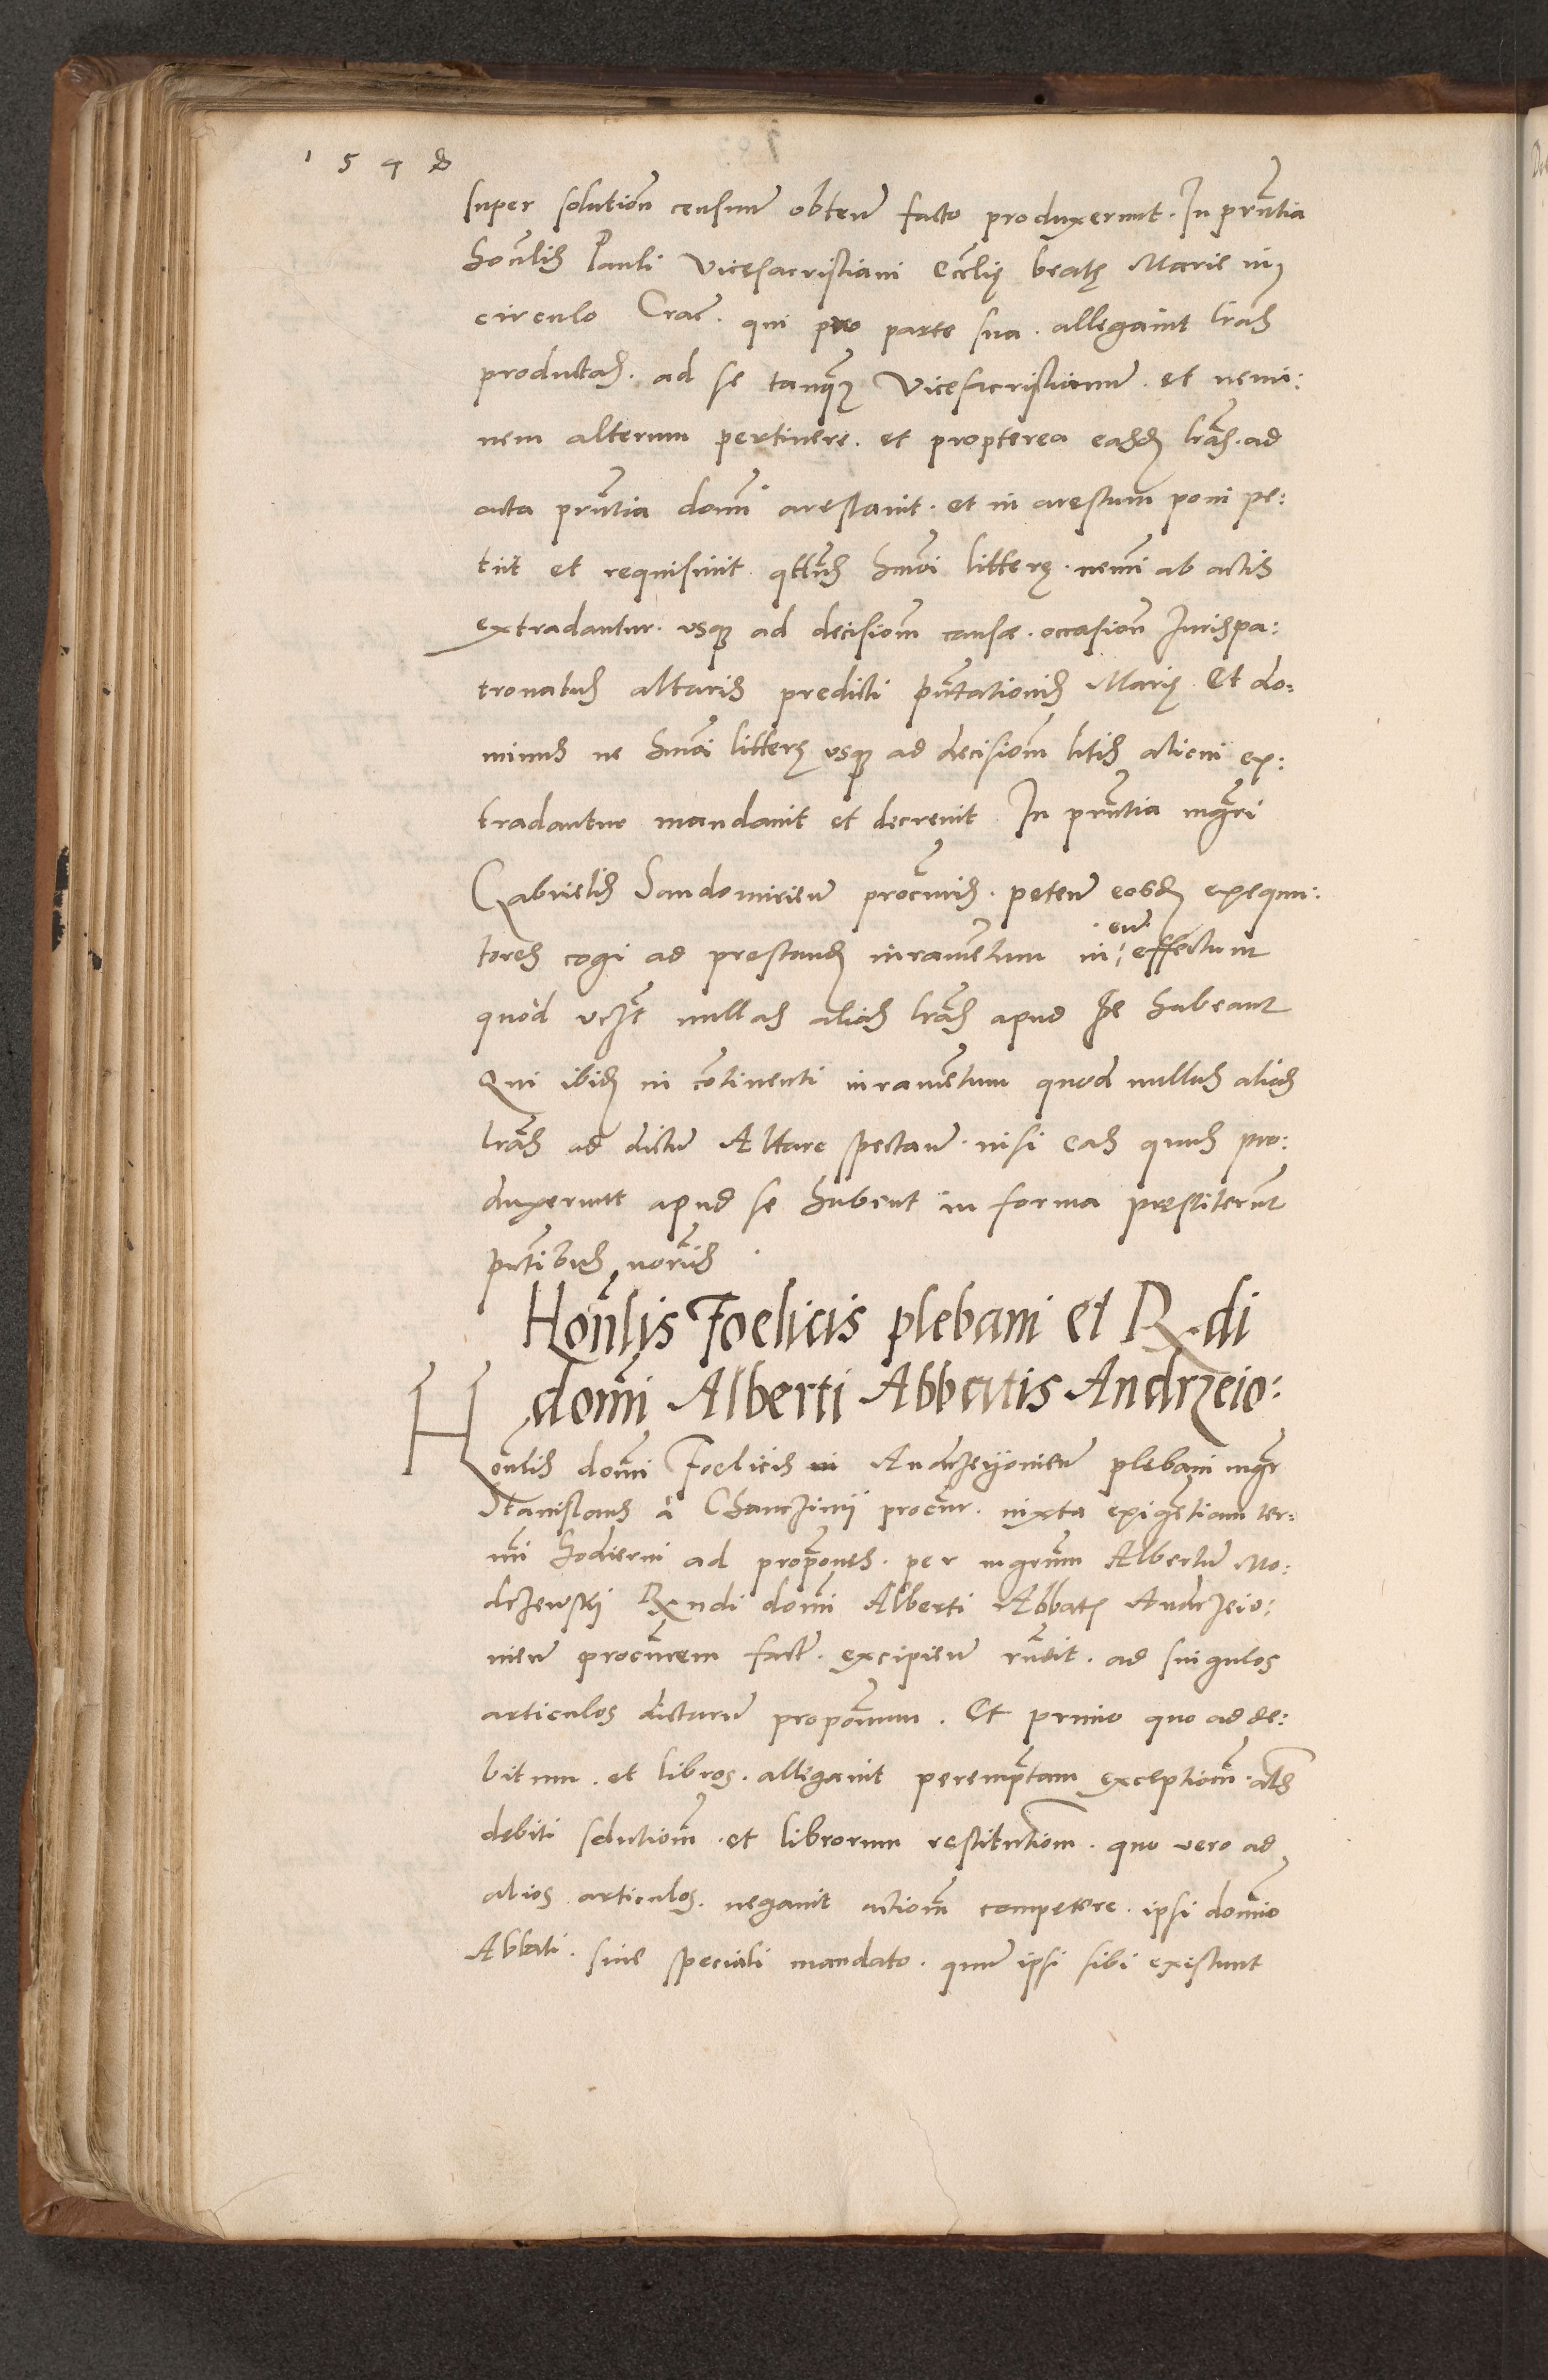 1548
super solution censuum obten facto produxerunt. In pñtia
honlis Pauli Vicesacristiani Ecclię beatę Marie in
circulo Crac. qui pro parte sua. allegavit lras
productas. ad se tanqz Vicesacristianum. et nemi:
nem alterum pertinere. et propterea easdz lras. ad
acta pñtia domi arestavit. et in arestum poni pe:
tiit et requisivit qtus hmoi litterę. nemi ab actis
extradantur. usqz ad decisiom causæ. occasion Jurispa:
tronatus altaris predicti pñtationis Marię Et do:
minus ne hmoi litterę usqz ad decisiom litis alicui ex:
tradantur mandavit et decrevit In pñtia mgri
Gabrielis Sandomirien procuris. peten eosdz exequu:
tores cogi ad prestandz iuramentum in eum effectum
quod uczt nullas alias lras apud se habeant
Qui ibidz in continenti iuramentum quod nullas alias
lras ad dictum Altare spectan. nisi eas quas pro:
duxerunt apud se habent in forma pręstiterunt
pñtibus noriis
Honlis Foelicis plebani et R.di
domi Alberti Abbatis Andrzeio:
Honlis domi Foelicis in Andrzeyovien plebani mgr
Stanislaus à Chanczinii procur. iuxta exigentiam ter:
mi hodierni ad propones. per mgrum Albertum Mo:
drzewski Rndi domi Alberti Abbatis Andrzeio:
vien procurem fact. excipien rndit. ad singulos
articulos dictarum proponum. Et primo quo ad de:
bitum. et libros. allegavit peremptam exceptiom. als
debiti solutiom. et librorum restitutiom. quo vero ad
alios articulos. negavit actiom competere. ipsi domino
Abbati. sine speciali mandato. quum ipsi sibi existunt